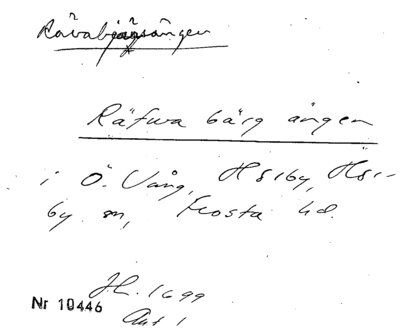 Rävabjärsängen
Räfwa bärg ängen
i Ö. Vång, Hörby, Hör-
by sn, Frosta hd.
J.h. 1699
Nr 10446
Akt 1